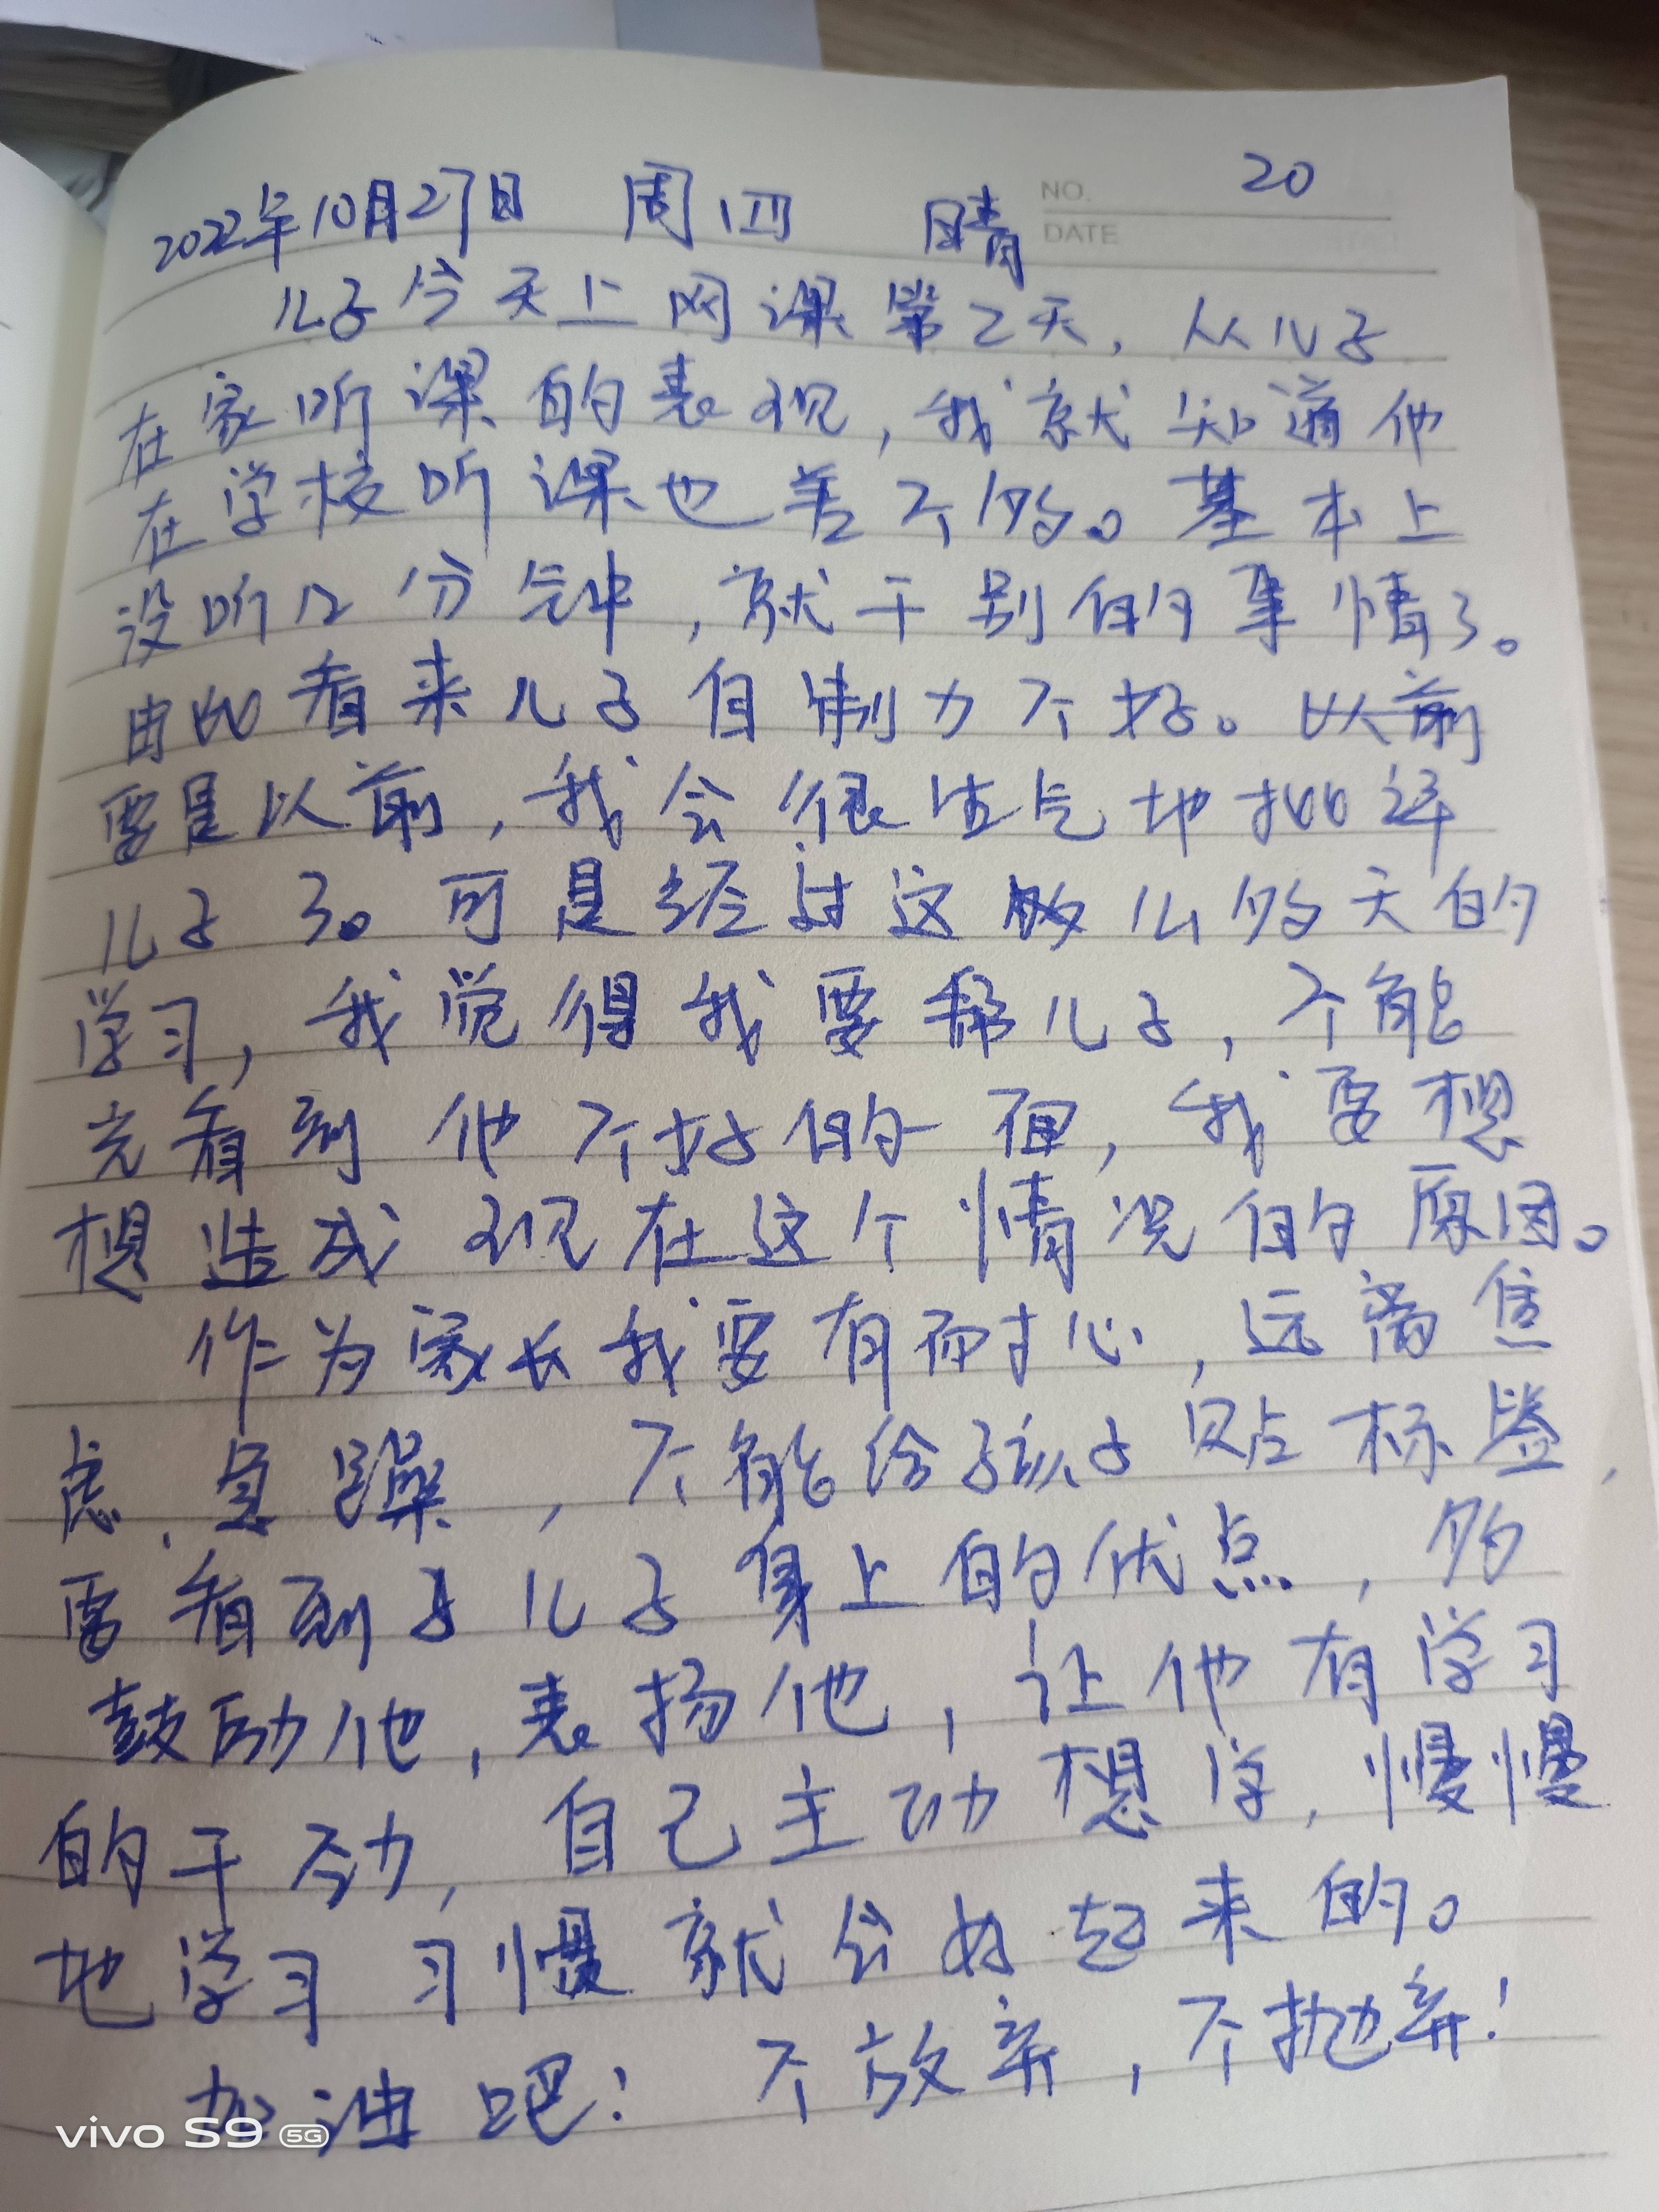 NO. 20
2022年10月27日 周四 晴 DATE
儿子今天上网课第2天，从儿子
在家听课的表现，我就知道他
在学校听课也差不多。基本上
没听几分钟，就干别的事情了。
由此看来儿子自制力不好。以前
要是以前，我会很生气地批评
儿子了。可是经过这么多天的
学习，我觉得我要帮儿子，不能
光看到他不好的一面，我要想
想造成现在这个情况的原因。
作为家长我要有耐心，远离焦
虑、急躁，不能给孩子贴标签，
要看到儿子身上的优点，多
鼓励他，表扬他，让他有学习
的干劲，自己主动想学，慢慢
地学习习惯就会好起来的。
加油吧！不放弃，不抛弃！
vivo S9 5G